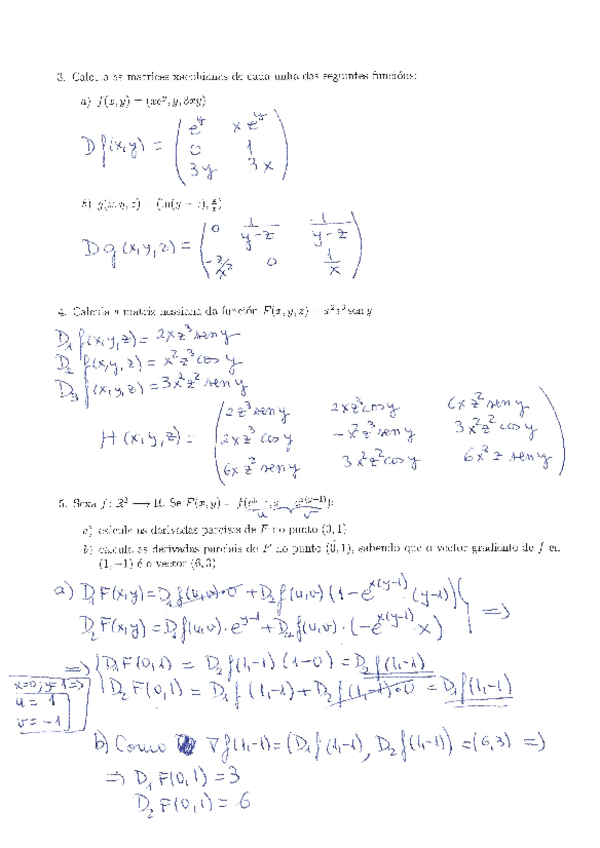 3. Calcula as matrices xacobianas de cada unha das seguintes funcións:
a) f(x, y) = (xe^y, y, 3xy)
Df(x,y) = ( e^y  x e^y
0  1
3y  3x )
b) g(x, y, z) = (ln(y − z), z/x)
Dg(x,y,z) = ( 0  1/(y-z)  -1/(y-z)
-z/x²  0  1/x )
4. Calcula a matriz hessiana da función F(x, y, z) = x²z³ sen y
D₁f(x,y,z) = 2xz³ sen y
D₂f(x,y,z) = x²z³ cos y
D₃f(x,y,z) = 3x²z² sen y
H(x,y,z) = ( 2z³ sen y  2xz³ cos y  6xz² sen y
2xz³ cos y  -x²z³ sen y  3x²z² cos y
6xz² sen y  3x²z² cos y  6x²z sen y )
5. Sexa f: R² ⟶ R. Se F(x, y) = f(
u  v
a) calcule as derivadas parciais de F no punto (0, 1)
b) calcule as derivadas parciais de F no punto (0, 1), sabendo que o vector gradiente de f en
(1, −1) é o vector (6, 3)
a) D₁F(x,y) = D₁f(u,v)·0 + D₂f(u,v)(1-e^{x(y-1)}(y-1)) ⟹
D₂F(x,y) = D₁f(u,v)·e^{y-1} + D₂f(u,v)·(-e^{x(y-1)}·x)
⟹ D₁F(0,1) = D₂f(1,-1)(1-0) = D₂f(1,-1)
x=0; y=1 ⟹ D₂F(0,1) = D₁f(1,-1) + D₂f(1,-1)·0 = D₁f(1,-1)
u = 1
v = -1
b) Como ∇f(1,-1) = (D₁f(1,-1), D₂f(1,-1)) = (6,3) ⟹
⟹ D₁F(0,1) = 3
D₂F(0,1) = 6